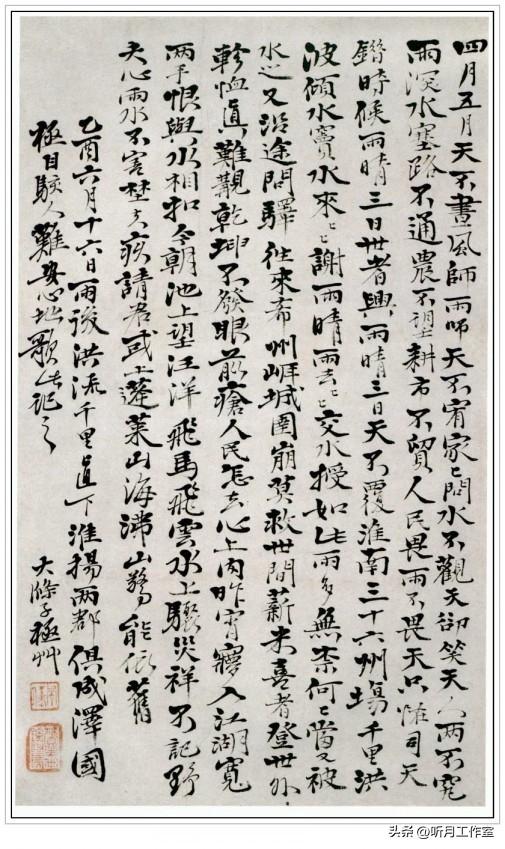 四月五月天不晝風師雨師天不宥家家問水不觀天卻笑天人兩不究
雨深水塞路不通農不望耕市不貿人民畏雨不畏天只恠司天
錯時候雨晴三日世者興雨晴三日天不覆淮南三十六州場千里洪
波傾水竇水來水來謝雨晴雨去雨去交水授如此雨多無柰何柰何當又被
水 又沿途問驛往來希州崖城圍崩莫救世間薪米喜者登世外
軫恤真難觀乾坤不發眼前瘡人民怎去心上肉昨宵寢入江湖寬
兩手恨與水相扣今朝池上望汪洋飛馬飛雲水上驟災祥不記野
夫心雨水不害埜夫疚請君或上蓬萊山海滯山驚能依舊
乙酉六月十六日雨後洪流千里直下淮揚兩都俱成澤國
極目駭人難與心地歌此記之
大滌子極艸
头条 @听月工作室